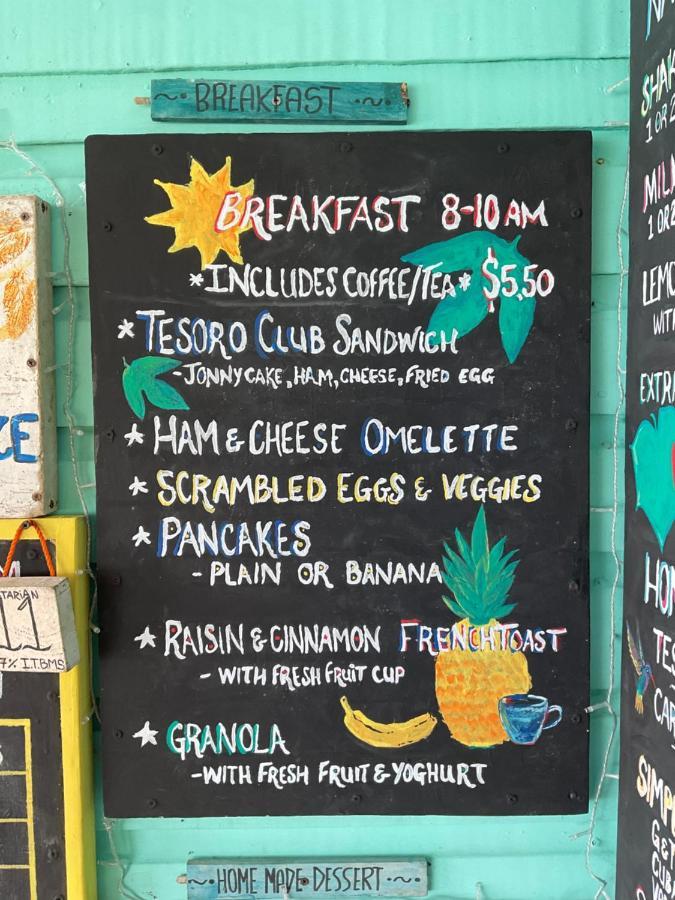 ~ BREAKFAST ~
BREAKFAST 8-10 AM
*INCLUDES COFFEE/TEA* $5,50
*TESORO CLUB SANDWICH
-JONNYCAKE, HAM, CHEESE, FRIED EGG
*HAM & CHEESE OMELETTE
*SCRAMBLED EGGS & VEGGIES
*PANCAKES
-PLAIN OR BANANA
*RAISIN & CINNAMON FRENCHTOAST
-WITH FRESH FRUIT CUP
*GRANOLA
-WITH FRESH FRUIT & YOGHURT
~HOME MADE DESSERT~
7% I.T.B.M.S
1 OR
1 OR
WITH